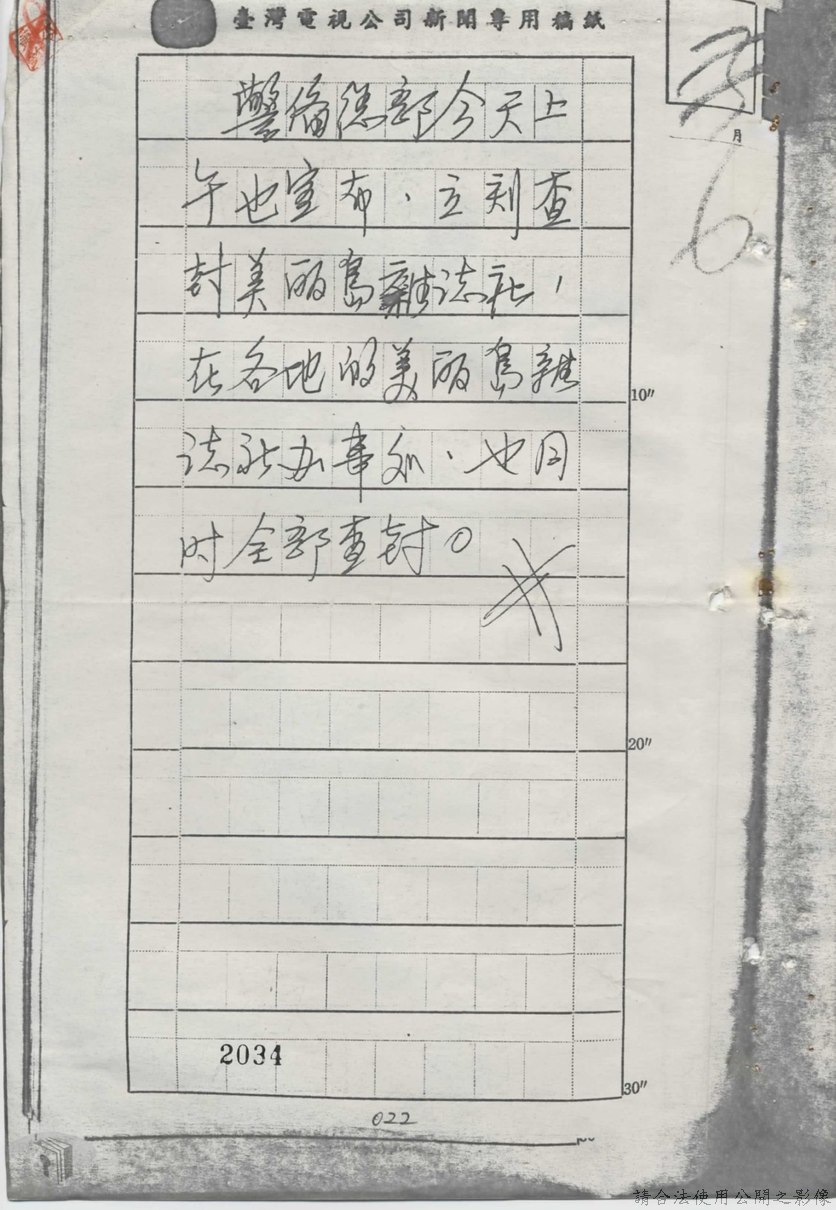 臺灣電視公司新聞專用稿紙
月
6
警備总部今天上
午也宣布、立刻查
封美丽島雜誌社,
在各地的美丽島雜
誌社办事処、也同
时全部查封。
10"
20"
30"
2034
022
請合法使用公開之影像